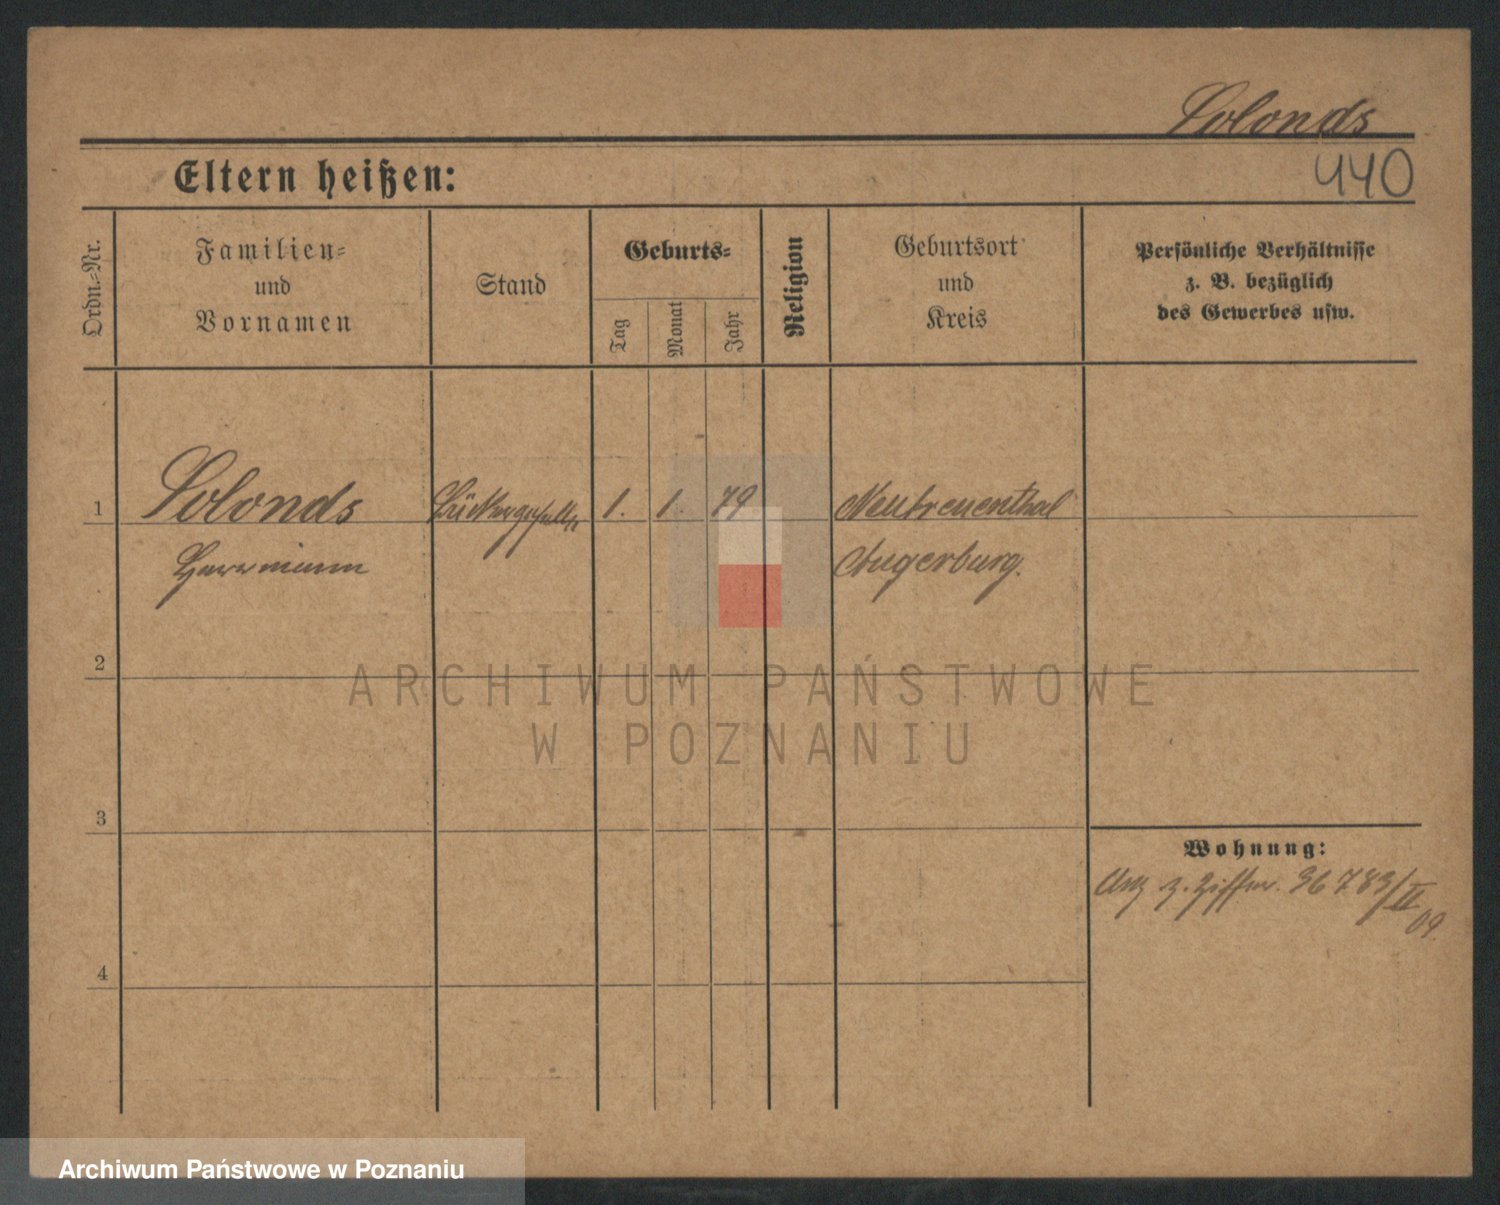 Solonds
440
Eltern heißen:
Ordn.-Nr.
Familien-
und
Vornamen
Stand
Geburts-
Tag
Monat
Jahr
Religion
Geburtsort
und
Kreis
Persönliche Verhältnisse
z. B. bezüglich
des Gewerbes usw.
1
Solonds
Herrmann
1. 1. 79
Neufreuenthal
Angerburg.
2
ARCHIWUM PAŃSTWOWE
W POZNANIU
3
Wohnung:
z. Ziffer. 36783/II
09.
4
Archiwum Państwowe w Poznaniu